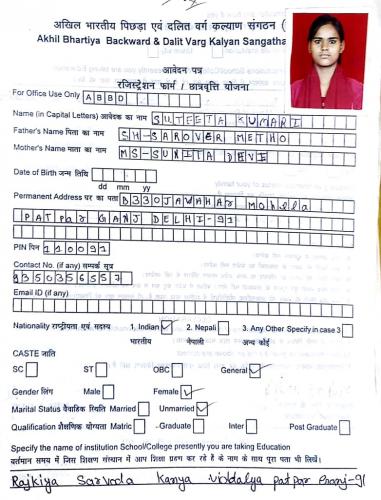 अखिल भारतीय पिछड़ा एवं दलित वर्ग कल्याण संगठन (
Akhil Bhartiya Backward & Dalit Varg Kalyan Sangatha
आवेदन पत्र
रजिस्ट्रेशन फार्म / छात्रवृत्ति योजना
For Office Use Only ABBD
Name (in Capital Letters) आवेदक का नाम SUTEETA KUMARI
Father's Name पिता का नाम SH-SAROVER METHO
Mother's Name माता का नाम MS-SUNITA DEVI
Date of Birth जन्म तिथि
dd mm yy
Permanent Address घर का पता D330JAWAHAR Mohlla
PATPar GANJ DELHI-91
PIN पिन 110091
Contact No. (if any) सम्पर्क सूत्र
9350356557
Email ID (if any)
Nationality राष्ट्रीयता एवं सदस्य 1. Indian ✓ 2. Nepali 3. Any Other Specify in case 3
भारतीय नेपाली अन्य कोई
CASTE जाति
SC ST OBC General ✓
Gender लिंग Male Female ✓
Marital Status वैवाहिक स्थिति Married Unmarried ✓
Qualification शैक्षणिक योग्यता Matric -Graduate Inter Post Graduate
Specify the name of institution School/College presently you are taking Education
वर्तमान समय में जिस शिक्षण संस्थान में आप शिक्षा प्राप्त कर रहे हैं के नाम के साथ पूरा पता भी लिखें।
Rajkiya Sarvoda Kanya violdalya patpar Ganj-91